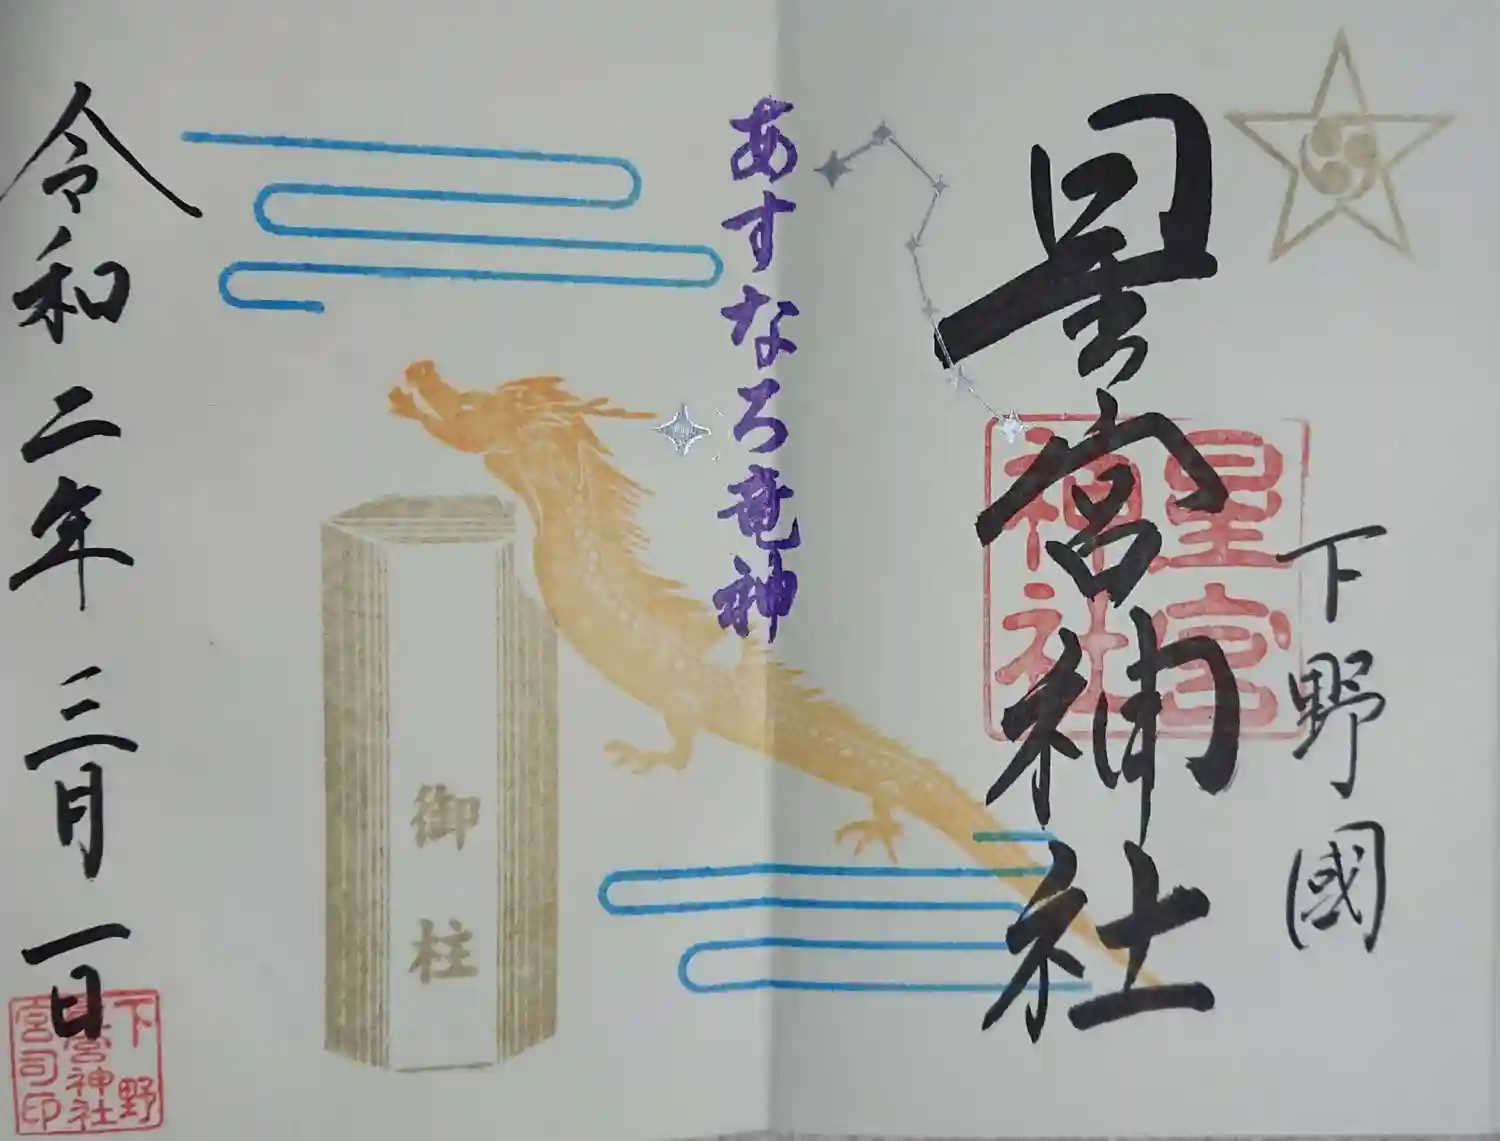 下野國
星宮神社
星宮神社
あすなろ竜神
御柱
令和二年三月一日
下野
星宮神社
宮司印